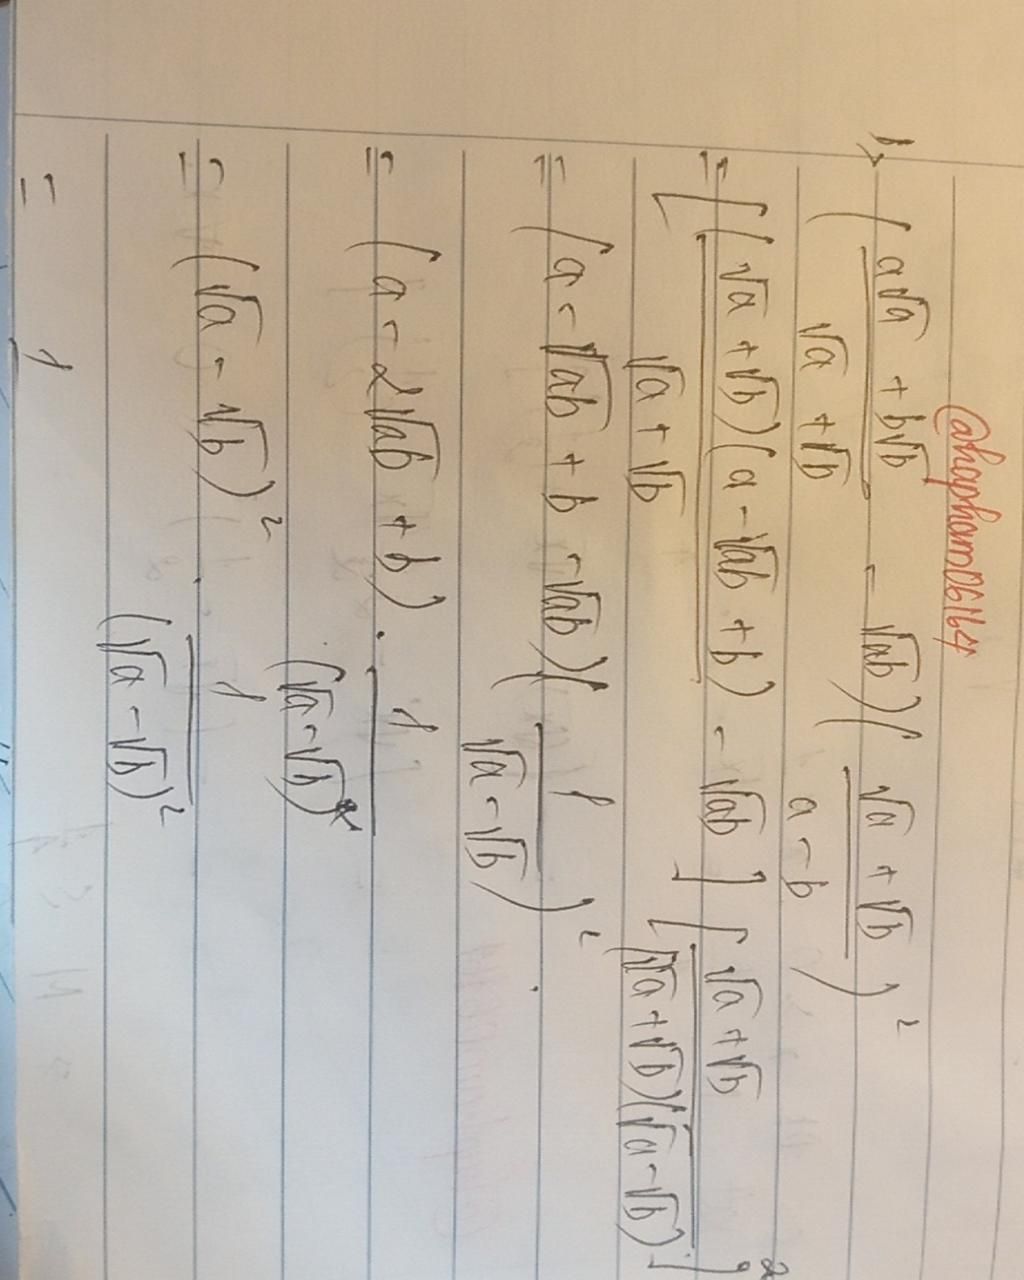 @hapham06164
b, (a√a + b√b / √a + √b - √ab)(√a + √b / a - b)²
= [(√a + √b)(a - √ab + b) / √a + √b - √ab] [√a + √b / (√a + √b)(√a - √b)]²
= (a - √ab + b - √ab)(1 / √a - √b)².
= (a - 2√ab + b) . 1 / (√a - √b)²
= (√a - √b)² . 1 / (√a - √b)²
= 1